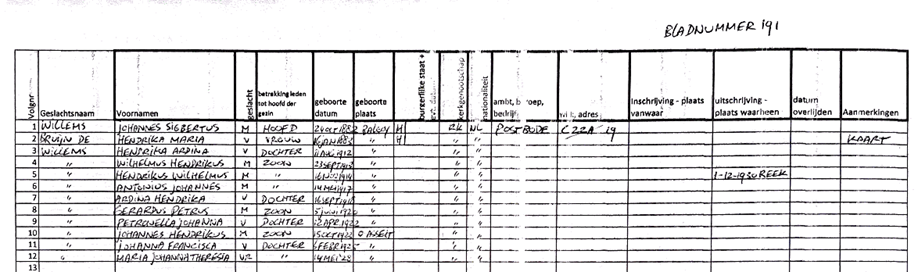 BLADNUMMER 191
Volgnr Geslachtsnaam Voornamen geslacht betrekking leden tot hoofd der gezin geboorte datum geboorte plaats burgerlijke staat + kerkgenootschap nationaliteit ambt, beroep, bedrijf adres Inschrijving - plaats vanwaar uitschrijving - plaats waarheen datum overlijden Aanmerkingen
1 WILLEMS JOHANNES SIEBERTUS M HOOFD 24 OCT 1882 H RK NL POSTBODE C22A 19
2 BRUIJN DE HENDRIKA MARIA V VROUW " H " " KAART
3 WILLEMS HENDRIKA ARDINA V DOCHTER 11 AUG 1912 " " "
4 " WILHELMUS HENDRIKUS M ZOON " " "
5 " HENDRIKUS WILHELMUS M " " " " 1-12-1930 REEK
6 " ANTONIUS JOHANNES M " 14 MEI 1917 " " "
7 " ARDINA HENDRIKA V DOCHTER " " "
8 " GERARDUS PETRUS M ZOON " " "
9 " PETRONELLA JOHANNA V DOCHTER " " "
10 " JOHANNES HENDRIKUS M ZOON " "
11 " JOHANNA FRANCISCA V DOCHTER " " "
12 " MARIA JOHANNA THERESIA " " " "
13